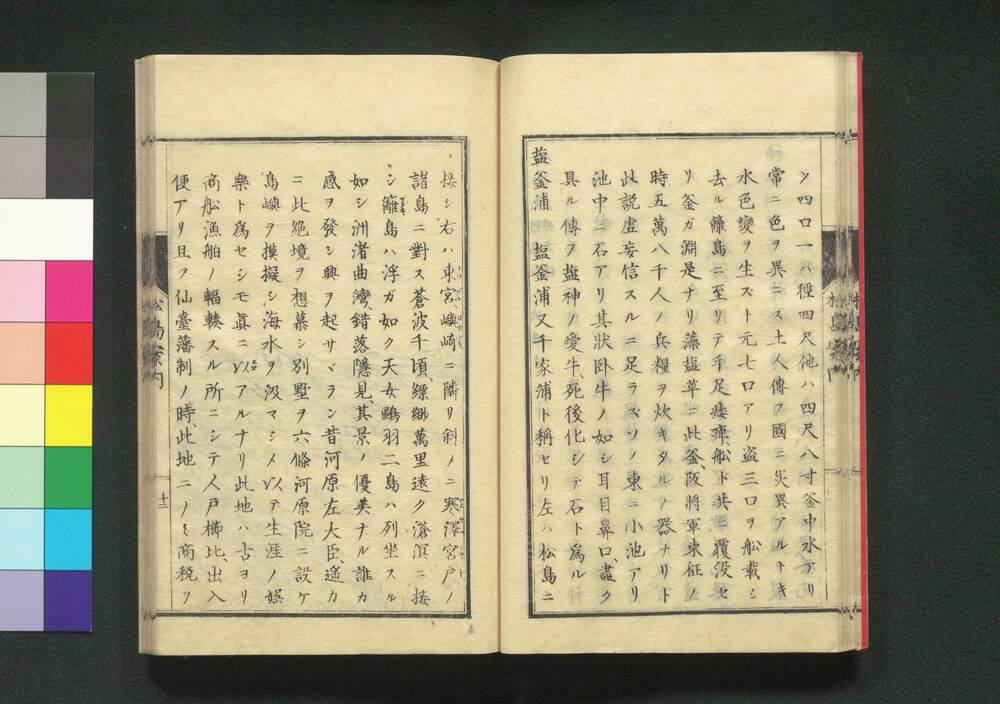 ツ四口一ハ徑四尺他ハ四尺八寸釜中水アリ
常ニ色ヲ異ニス土人傳フ國ニ災異アルトキ
水色變ヲ生ズト元七口アリ盗三口ヲ船載シ
去ル籬島ニ至リテ手足痿痺、船ト共ニ覆没セ
リ釜ガ淵是ナリ藻塩草ニ此釜、阪將軍東征ノ
時五萬八千人ノ兵糧ヲ炊キタルノ器ナリト
此説虚妄信スルニ足ラズソノ東ニ小池アリ
池中ニ石アリ其狀卧牛ノ如シ耳目鼻口、盡ク
具ル傳ヲ塩神ノ愛牛、死後化シテ石ト爲ル
塩釜浦 塩釜浦又千家浦ト稱セリ左ハ松島ニ
接シ右ハ東宮、嶼崎ニ隣リ斜メニ寒澤宮戸ノ
諸島ニ對ス蒼波千頃、縹緲萬里遠ク滄溟ニ接
シ籬島ハ浮ガ如ク天女鷗羽二島ハ列坐スル
如シ洲渚曲灣、錯落隱見、其景ノ優美ナル誰カ
感ヲ發シ興ヲ起サヾラン昔河原左大臣、遙カ
ニ此絶境ヲ想慕シ別墅ヲ六條河原院ニ設ケ
島嶼ヲ摸擬シ海水ヲ汲マシメ以テ生涯ノ娯
樂ト爲セシモ眞ニ以アルナリ此地ハ古ヨリ
商舩漁舶ノ輻輳スル所ニシテ人戸櫛比、出入
便アリ且ツ仙臺藩制ノ時、此地ニノミ商税ヲ
松島案内
十二
松島案内